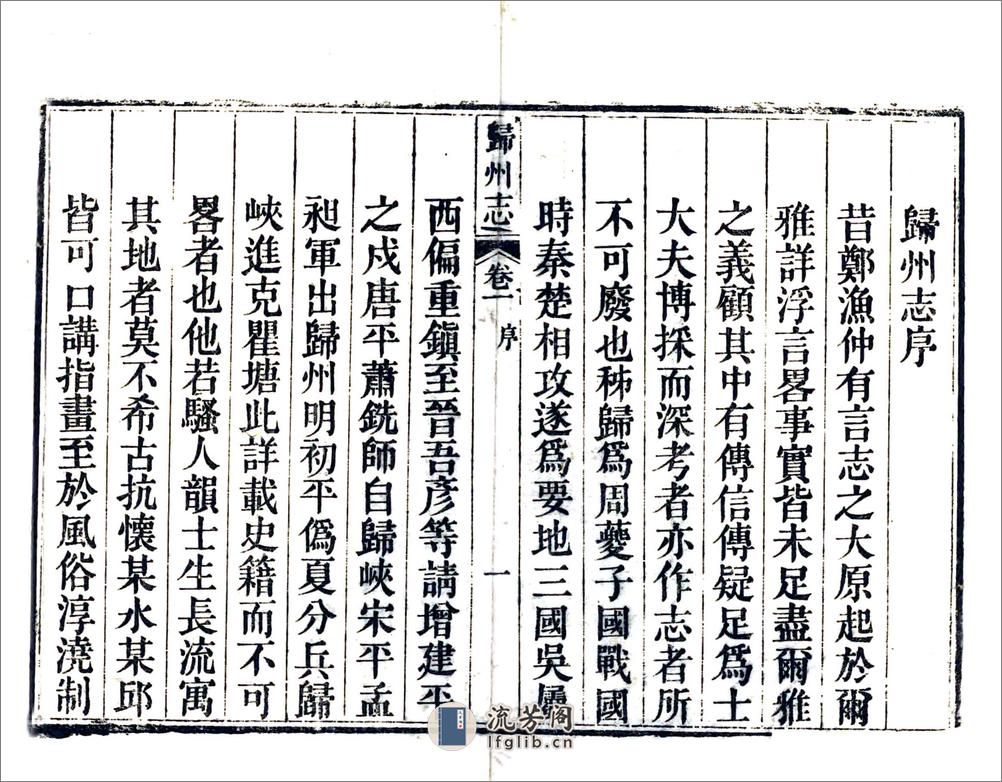 歸州志序
昔鄭漁仲有言志之大原起於爾
雅詳浮言畧事實皆未足盡爾雅
之義顧其中有傳信傳疑足爲士
大夫博採而深考者亦作志者所
不可廢也秭歸爲周夔子國戰國
時秦楚相攻遂爲要地三國吳屬
歸州志
卷一
序
一
西偏重鎭至晉吾彥等請增建平
之戍唐平蕭銑師自歸峽宋平孟
昶軍出歸州明初平僞夏分兵歸
峽進克瞿塘此詳載史籍而不可
畧者也他若騷人韻士生長流寓
其地者莫不希古抗懷某水某邱
皆可口講指畫至於風俗淳澆制
流芳阁
lfglib.cn